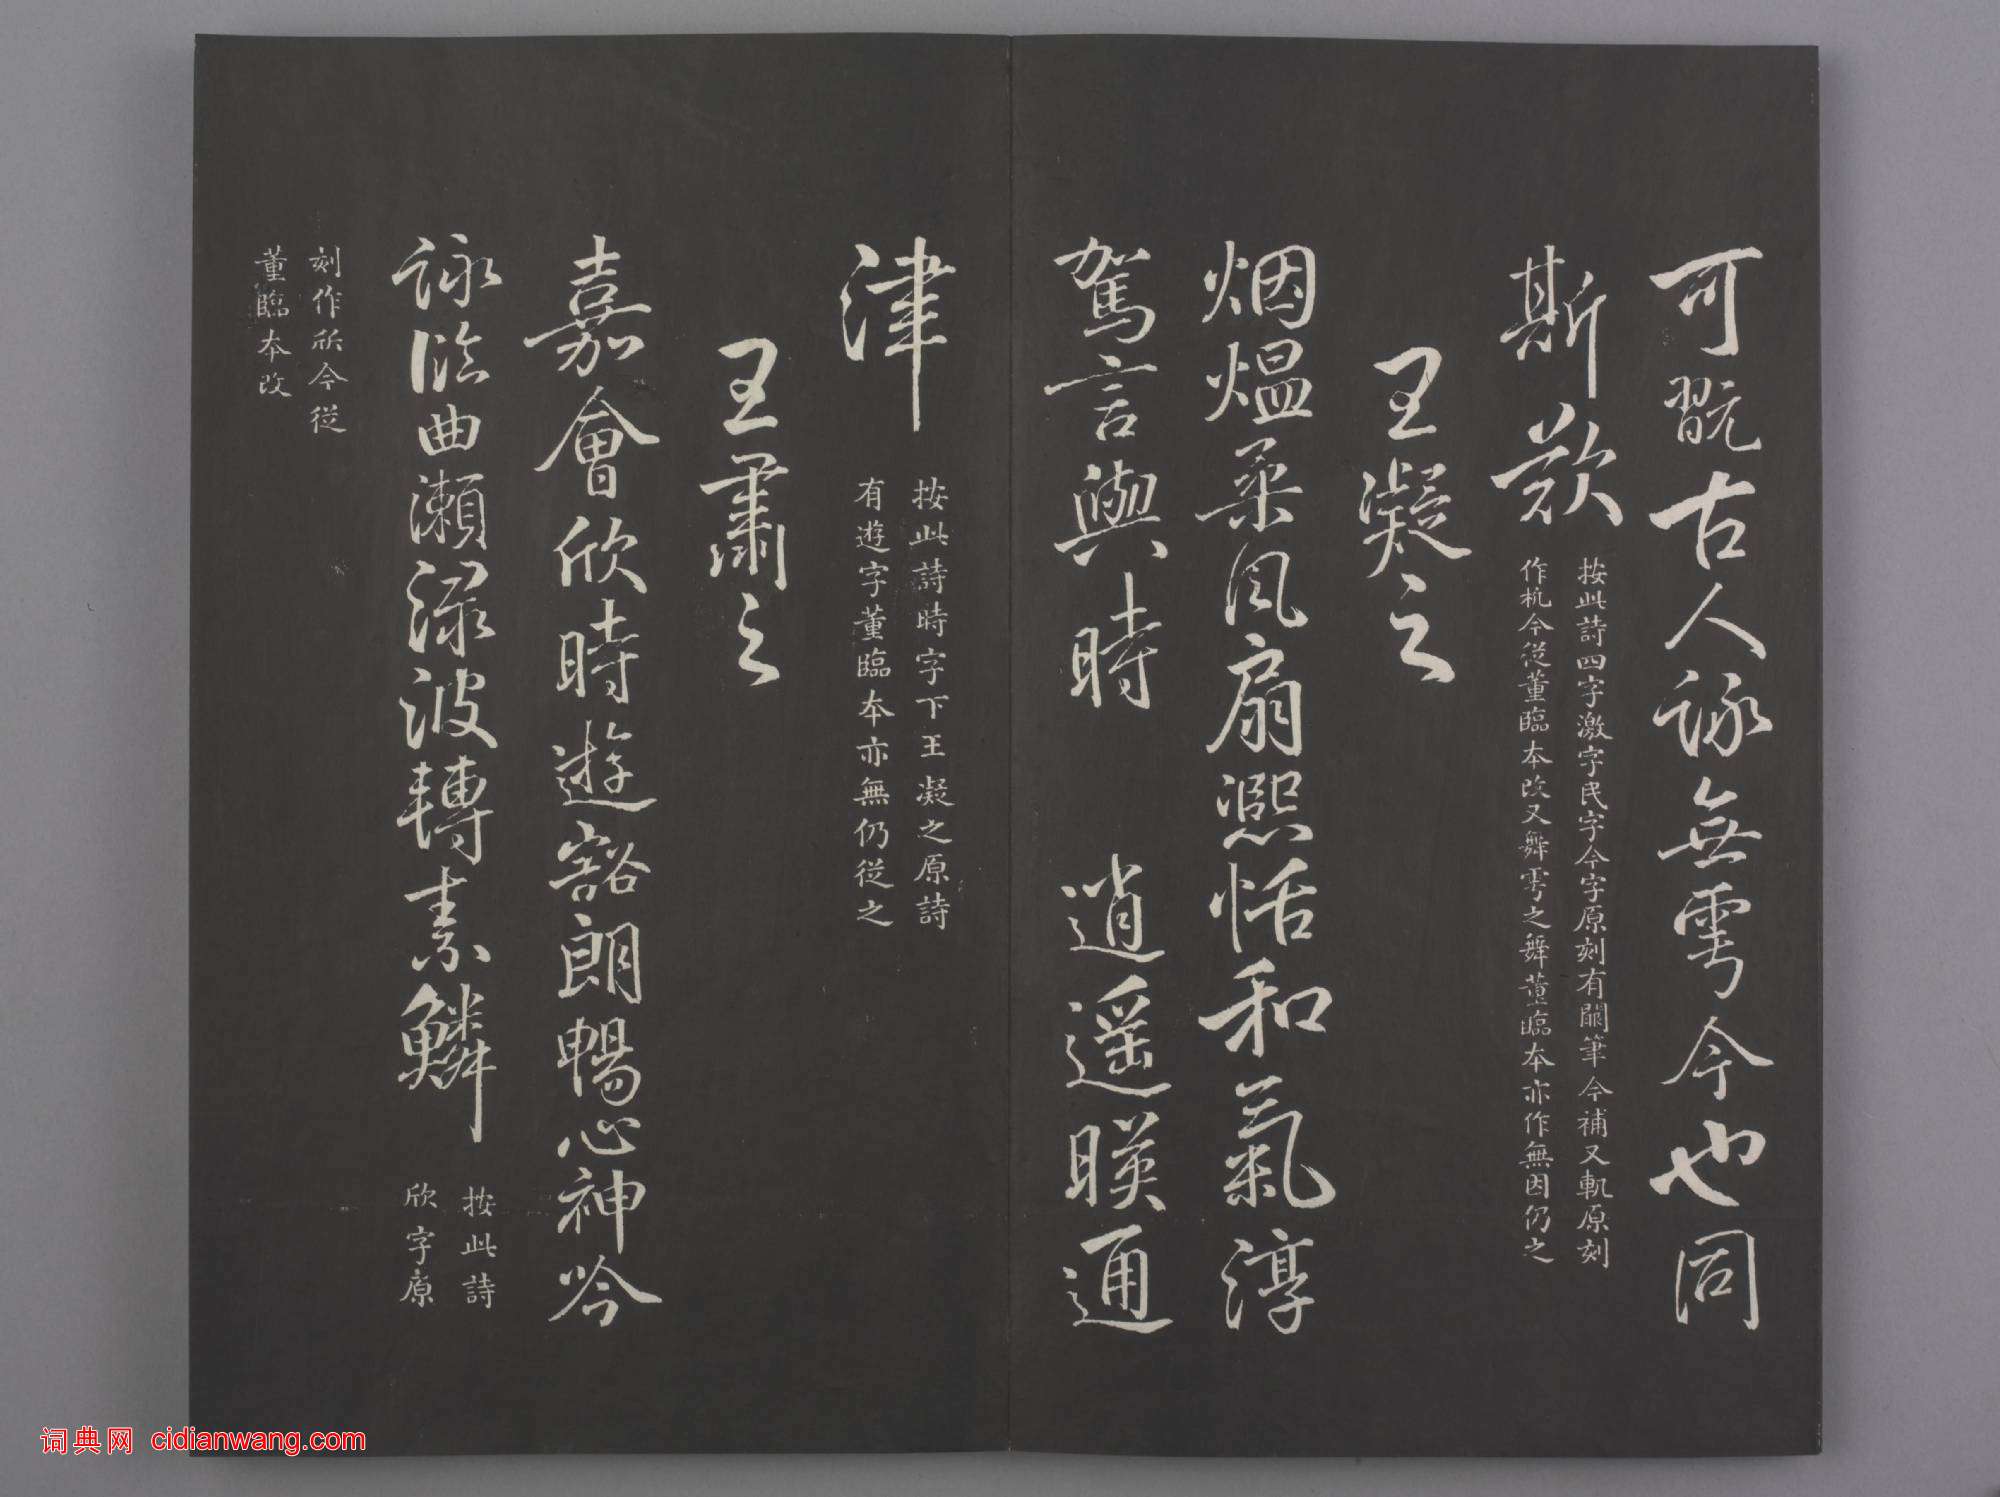 可翫古人詠無雩今也同
斯歎
按此詩四字激字民字今字原刻有闕筆今補又軌原刻
作杋今從董臨本改又舞雩之舞董臨本亦作無因仍之
王凝之
烟熅柔風扇熈恬和氣淳
駕言與時 逍遥暎通
津
按此詩時字下王凝之原詩
有遊字董臨本亦無仍從之
王肅之
嘉會欣時遊豁朗暢心神吟
詠臨曲瀨渌波轉素鱗
按此詩
欣字原
刻作 今從
董臨本改
词典网 cidianwang.com